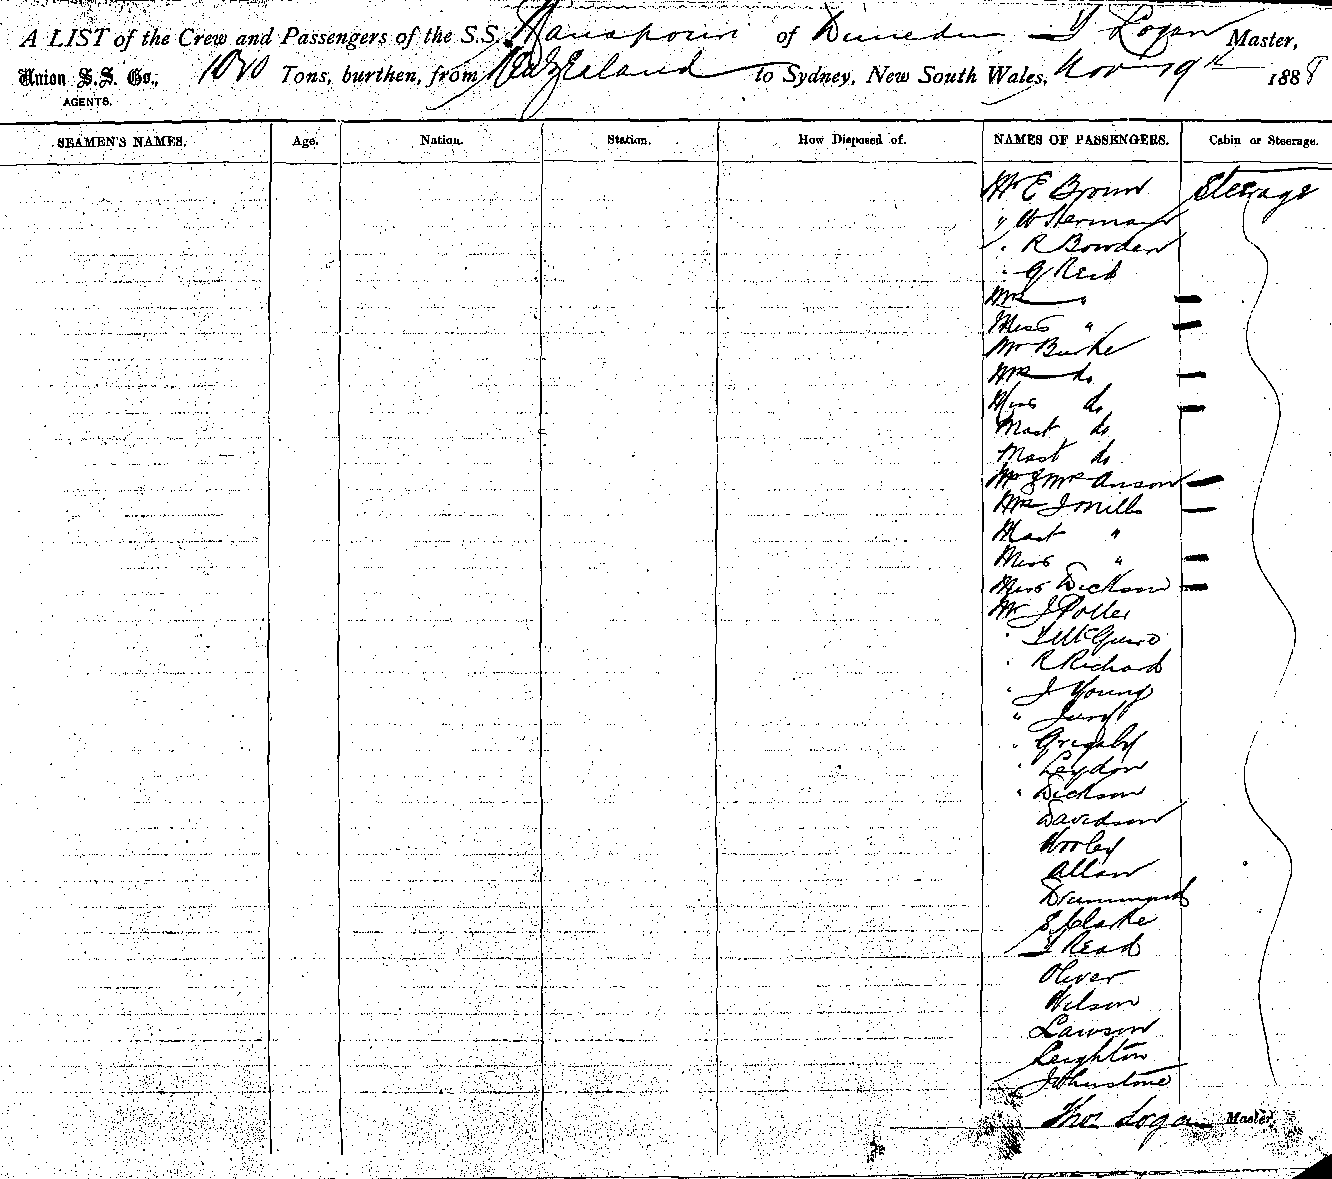 A LIST of the Crew and Passengers of the S.S. Manapouri of Dunedin T Logan Master,
Union S.S. Co., 1020 Tons, burthen, from New Zealand to Sydney, New South Wales, Nov 19th 1888
AGENTS.
SEAMEN'S NAMES. Age. Nation. Station. How Disposed of. NAMES OF PASSENGERS. Cabin or Steerage.
Mr E Brown Steerage
" W Herman
" R Bowden
" G Reid
Mrs "
Miss "
Mr Burke
Mrs do
Miss do
Mast do
Mast do
Mr & Mrs Anson
Mrs J Mills
Mast "
Miss "
Miss Dickson
Mr J Potter
" T McGuire
" R Richards
" J Young
" Jury
" Grigsby
" Leydon
" Dickson
Davidson
Wooley
Allan
Drummond
E Clarke
T Read
Oliver
Wilson
Lawson
Leighton
Johnstone
Thos Logan Master.